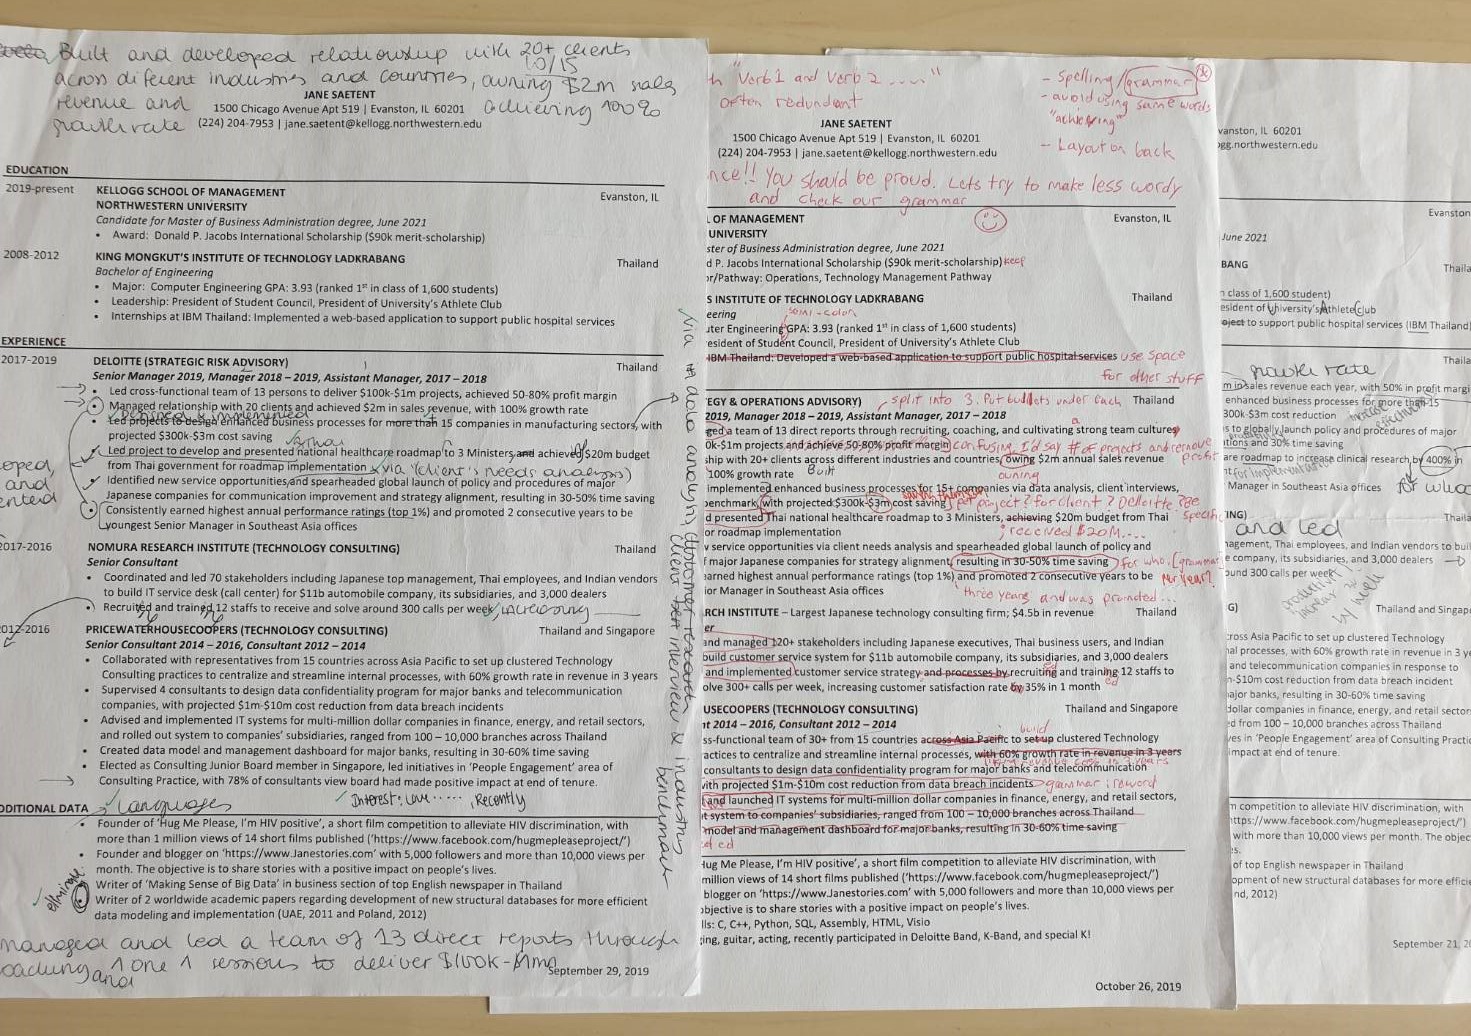 Built and developed relationship with 20+ clients
10/15
across diferent industries and countries, owning $2m sales
revenue and
achieving 100%
growth rate
JANE SAETENT
1500 Chicago Avenue Apt 519 | Evanston, IL 60201
(224) 204-7953 | jane.saetent@kellogg.northwestern.edu
EDUCATION
2019-present KELLOGG SCHOOL OF MANAGEMENT Evanston, IL
NORTHWESTERN UNIVERSITY
Candidate for Master of Business Administration degree, June 2021
• Award: Donald P. Jacobs International Scholarship ($90k merit-scholarship)
2008-2012 KING MONGKUT'S INSTITUTE OF TECHNOLOGY LADKRABANG Thailand
Bachelor of Engineering
• Major: Computer Engineering GPA: 3.93 (ranked 1st in class of 1,600 students)
• Leadership: President of Student Council, President of University's Athlete Club
• Internships at IBM Thailand: Implemented a web-based application to support public hospital services
EXPERIENCE
2017-2019 DELOITTE (STRATEGIC RISK ADVISORY) Thailand
Senior Manager 2019, Manager 2018 – 2019, Assistant Manager, 2017 – 2018
• Led cross-functional team of 13 persons to deliver $100k-$1m projects, achieved 50-80% profit margin
• Managed relationship with 20 clients and achieved $2m in sales revenue, with 100% growth rate
• Led projects to design enhanced business processes for more than 15 companies in manufacturing sectors, with
projected $300k-$3m cost saving
• Led project to develop and presented national healthcare roadmap to 3 Ministers, and achieved $20m budget
from Thai government for roadmap implementation
via (client's needs analysis)
• Identified new service opportunities, and spearheaded global launch of policy and procedures of major
Japanese companies for communication improvement and strategy alignment, resulting in 30-50% time saving
• Consistently earned highest annual performance ratings (top 1%) and promoted 2 consecutive years to be
youngest Senior Manager in Southeast Asia offices
2017-2016 NOMURA RESEARCH INSTITUTE (TECHNOLOGY CONSULTING) Thailand
Senior Consultant
• Coordinated and led 70 stakeholders including Japanese top management, Thai employees, and Indian vendors
to build IT service desk (call center) for $11b automobile company, its subsidiaries, and 3,000 dealers
• Recruited and trained 12 staffs to receive and solve around 300 calls per week, increasing
2012-2016 PRICEWATERHOUSECOOPERS (TECHNOLOGY CONSULTING) Thailand and Singapore
Senior Consultant 2014 – 2016, Consultant 2012 – 2014
• Collaborated with representatives from 15 countries across Asia Pacific to set up clustered Technology
Consulting practices to centralize and streamline internal processes, with 60% growth rate in revenue in 3 years
• Supervised 4 consultants to design data confidentiality program for major banks and telecommunication
companies, with projected $1m-$10m cost reduction from data breach incidents
• Advised and implemented IT systems for multi-million dollar companies in finance, energy, and retail sectors,
and rolled out system to companies' subsidiaries, ranged from 100 – 10,000 branches across Thailand
• Created data model and management dashboard for major banks, resulting in 30-60% time saving
• Elected as Consulting Junior Board member in Singapore, led initiatives in 'People Engagement' area of
Consulting Practice, with 78% of consultants view board had made positive impact at end of tenure.
DDITIONAL DATA
Languages
Interest: Love ...... , Recently
• Founder of 'Hug Me Please, I'm HIV positive', a short film competition to alleviate HIV discrimination, with
more than 1 million views of 14 short films published ('https://www.facebook.com/hugmepleaseproject/')
• Founder and blogger on 'https://www.Janestories.com' with 5,000 followers and more than 10,000 views per
month. The objective is to share stories with a positive impact on people's lives.
eliminate
• Writer of 'Making Sense of Big Data' in business section of top English newspaper in Thailand
• Writer of 2 worldwide academic papers regarding development of new structural databases for more efficient
data modeling and implementation (UAE, 2011 and Poland, 2012)
managed and led a team of 13 direct reports through
oaching and 1 one 1 sessions to deliver $100k-$1m
September 29, 2019
via data analysis, customer research
client interview & industry
benchmark
"Verb 1 and Verb 2 ....."
often redundant
- Spelling/grammar
- avoid using same words
"achieving"
- Layout on back
JANE SAETENT
1500 Chicago Avenue Apt 519 | Evanston, IL 60201
(224) 204-7953 | jane.saetent@kellogg.northwestern.edu
nce!! You should be proud. Lets try to make less wordy
and check our grammar
L OF MANAGEMENT Evanston, IL
UNIVERSITY
ster of Business Administration degree, June 2021
d P. Jacobs International Scholarship ($90k merit-scholarship) keep
or/Pathway: Operations, Technology Management Pathway
S INSTITUTE OF TECHNOLOGY LADKRABANG Thailand
eering
semi-colon
uter Engineering GPA: 3.93 (ranked 1st in class of 1,600 students)
resident of Student Council, President of University's Athlete Club
IBM Thailand: Developed a web-based application to support public hospital services use space
for other stuff
EGY & OPERATIONS ADVISORY) split into 3. Put bullets under each Thailand
2019, Manager 2018 – 2019, Assistant Manager, 2017 – 2018
ged a team of 13 direct reports through recruiting, coaching, and cultivating a strong team culture
0k-$1m projects and achieve 50-80% profit margin confusing, I'd say # of projects and remove
profit
ship with 20+ clients across different industries and countries, owing $2m annual sales revenue
100% growth rate Built owning
implemented enhanced business processes for 15+ companies via data analysis, client interviews,
benchmark, with projected $300k-$3m cost saving for project? for client? Deloitte? Be
specific
d presented Thai national healthcare roadmap to 3 Ministers, achieving $20m budget from Thai
or roadmap implementation ; received $20M....
w service opportunities via client needs analysis and spearheaded global launch of policy and
f major Japanese companies for strategy alignment, resulting in 30-50% time saving for who. [grammar
earned highest annual performance ratings (top 1%) and promoted 2 consecutive years to be per year?
ior Manager in Southeast Asia offices three years and was promoted...
RCH INSTITUTE – Largest Japanese technology consulting firm; $4.5b in revenue Thailand
er
and managed 120+ stakeholders including Japanese executives, Thai business users, and Indian
build customer service system for $11b automobile company, its subsidiaries, and 3,000 dealers
and implemented customer service strategy and processes by recruiting and training 12 staffs to
olve 300+ calls per week, increasing customer satisfaction rate by 35% in 1 month
USECOOPERS (TECHNOLOGY CONSULTING) Thailand and Singapore
t 2014 – 2016, Consultant 2012 – 2014
build
ss-functional team of 30+ from 15 countries across Asia Pacific to set up clustered Technology
actices to centralize and streamline internal processes, with 60% growth rate in revenue in 3 years
consultants to design data confidentiality program for major banks and telecommunication
with projected $1m-$10m cost reduction from data breach incidents grammar; reword
and launched IT systems for multi-million dollar companies in finance, energy, and retail sectors,
t system to companies' subsidiaries, ranged from 100 – 10,000 branches across Thailand
model and management dashboard for major banks, resulting in 30-60% time saving
Hug Me Please, I'm HIV positive', a short film competition to alleviate HIV discrimination, with
million views of 14 short films published ('https://www.facebook.com/hugmepleaseproject/')
blogger on 'https://www.Janestories.com' with 5,000 followers and more than 10,000 views per
objective is to share stories with a positive impact on people's lives.
lls: C, C++, Python, SQL, Assembly, HTML, Visio
ing, guitar, acting, recently participated in Deloitte Band, K-Band, and special K!
October 26, 2019
vanston, IL 60201
gg.northwestern.edu
Evanston
June 2021
BANG Thaila
n class of 1,600 student)
esident of University's Athlete Club
oject to support public hospital services (IBM Thailand)
Thaila
growth rate
m in sales revenue each year, with 50% in profit margi
enhanced business processes for more than 15
300k-$3m cost reduction
s to globally launch policy and procedures of major
tions and 30% time saving
are roadmap to increase clinical research, by 400% in
Manager in Southeast Asia offices
for who
and led
ING) Thaila
nagement, Thai employees, and Indian vendors to buil
e company, its subsidiaries, and 3,000 dealers
ound 300 calls per week
G) Thailand and Singap
cross Asia Pacific to set up clustered Technology
nal processes, with 60% growth rate in revenue in 3 ye
and telecommunication companies in response to
m-$10m cost reduction from data breach incident
ajor banks, resulting in 30-60% time saving
dollar companies in finance, energy, and retail sectors
ed from 100 – 10,000 branches across Thailand
ves in 'People Engagement' area of Consulting Practic
impact at end of tenure.
m competition to alleviate HIV discrimination, with
ttps://www.facebook.com/hugmepleaseproject/')
with more than 10,000 views per month. The objec
es.
of top English newspaper in Thailand
opment of new structural databases for more efficie
nd, 2012)
September 21, 20